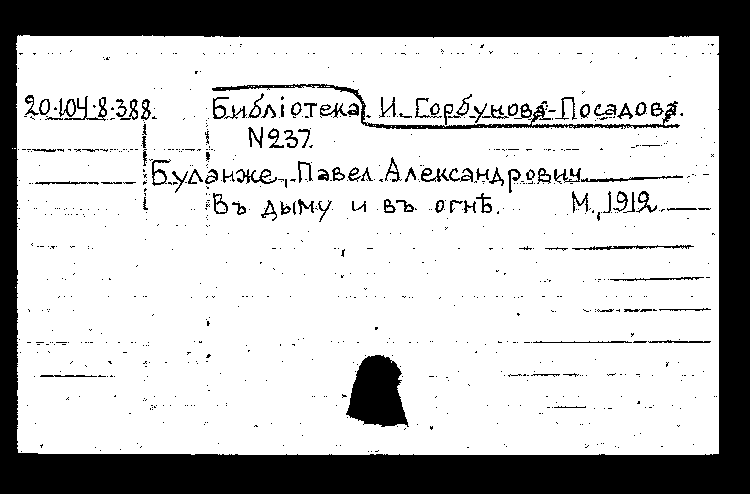 20.104.8.388. Библіотека И. Горбунова-Посадова.
N237.
Буланже, Павел Александрович
Въ дыму и въ огнѣ. М., 1912